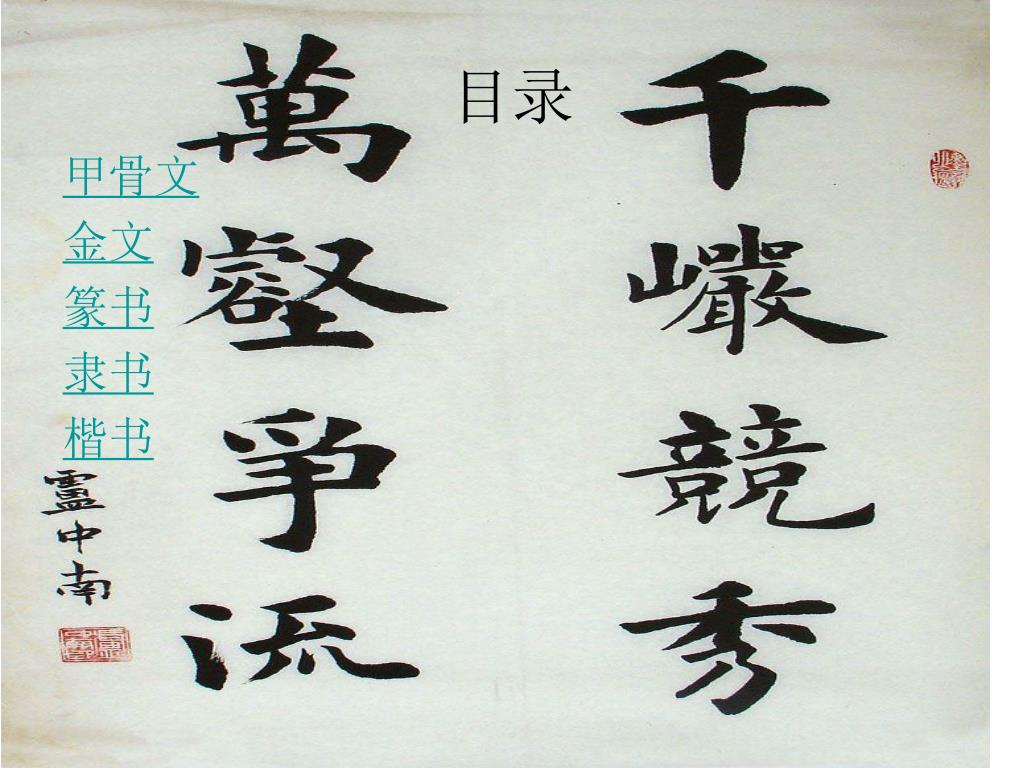 目录
甲骨文
金文
篆书
隶书
楷书
千巖競秀
萬壑爭流
盧中南